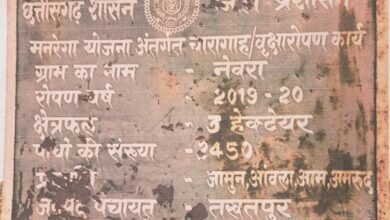 छत्तीसगढ़ शासन
मनरेगा योजना अंतर्गत चारागाह/वृक्षारोपण कार्य
ग्राम का नाम - नेवरा
रोपण वर्ष - 2019-20
क्षेत्रफल - 3 हेक्टेयर
पौधों की संख्या - 2450
- जामुन,आंवला,आम,अमरूद
जनपद पंचायत - तखतपुर